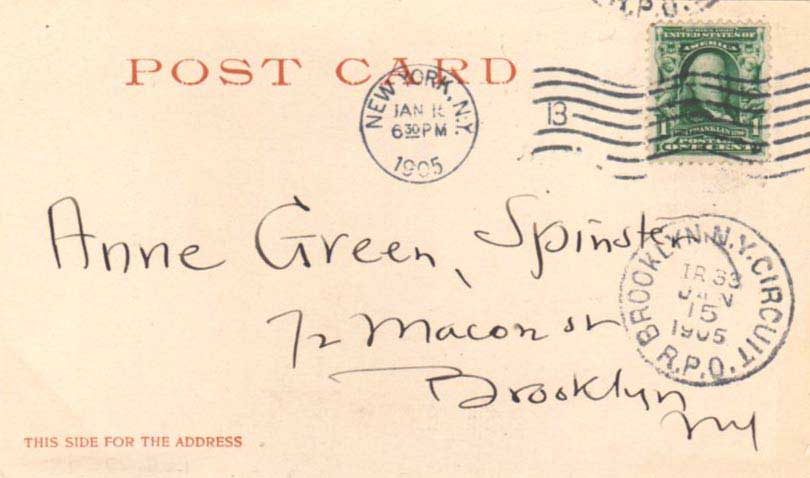 R.P.O.
POST CARD
NEW YORK, N.Y.
JAN 1
6 30 PM
1905
13
UNITED STATES OF
AMERICA
1 FRANKLIN 1
POSTAGE
ONE CENT
Anne Green, Spinster
72 Macon St
Brooklyn
NY
BROOKLYN, N.Y. CIRCUIT
TR 33
JAN
15
1905
R.P.O.
THIS SIDE FOR THE ADDRESS